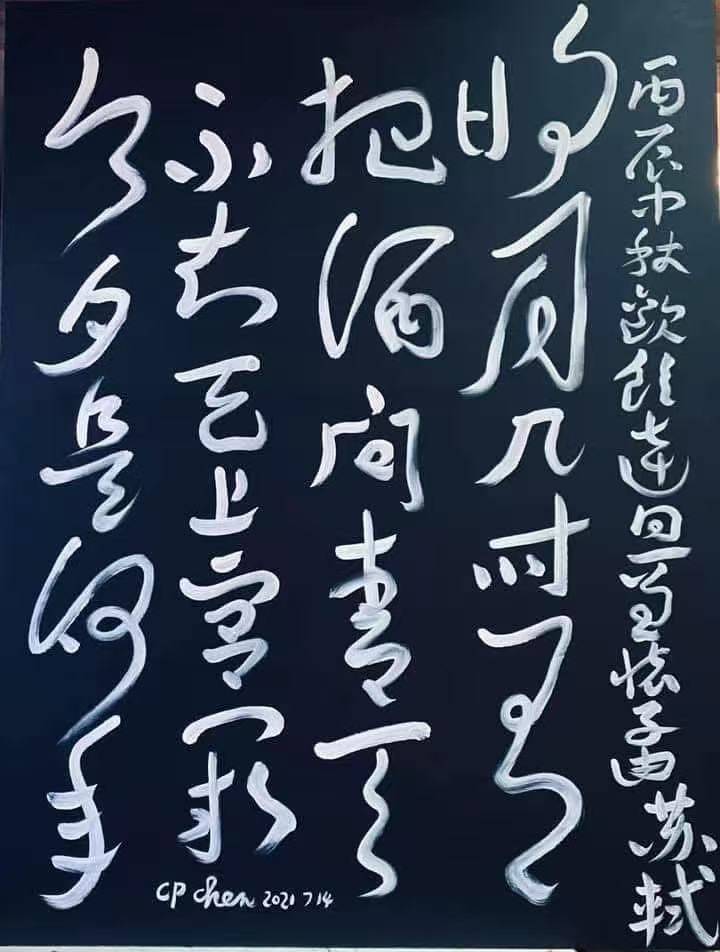 丙辰中秋歡飲達旦兼懷子由苏轼
明月几时有
把酒问青天
不知天上宫阙
今夕是何年
CP Chen 2021 7 14